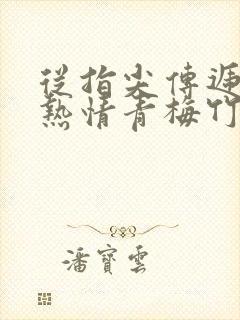 從指尖傳遞
熱情青梅竹
潘寶雲